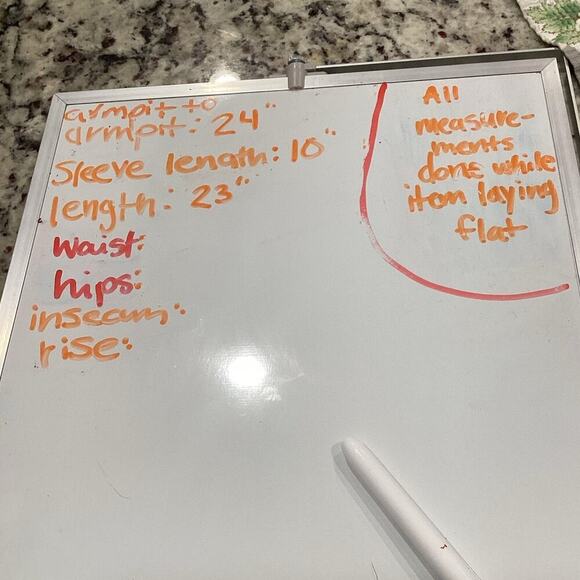 armpit to
armpit: 24"
Sleeve length: 10"
length: 23"
Waist:
hips:
inseam:
rise:
All
measure-
ments
done while
item laying
flat